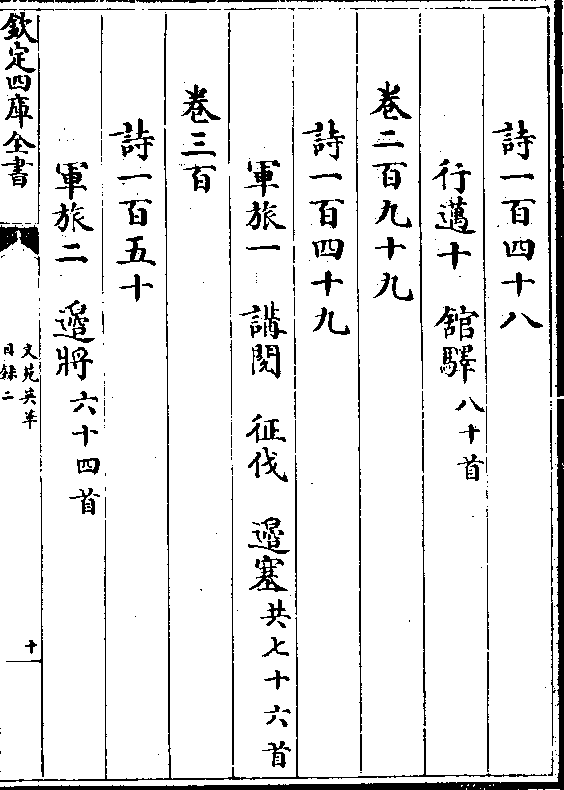 詩一百四十八
行邁十 館驛八十首
卷二百九十九
詩一百四十九
軍旅一 講閱 征伐 邊塞共七十六首
卷三百
詩一百五十
軍旅二 邊將六十四首
欽定四庫全書
文苑英華
目録二
十